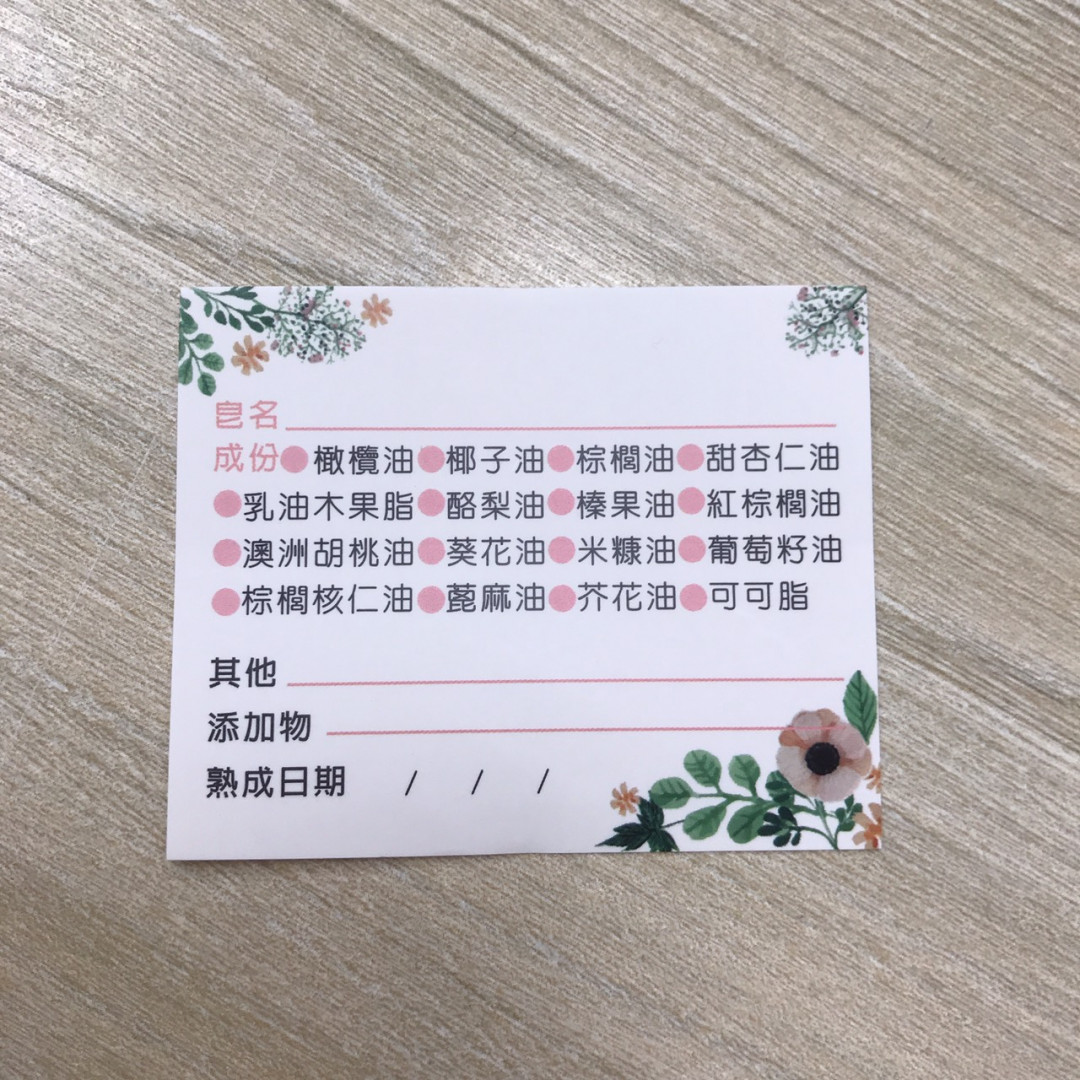 皂名
成份●橄欖油●椰子油●棕櫚油●甜杏仁油
●乳油木果脂●酪梨油●榛果油●紅棕櫚油
●澳洲胡桃油●葵花油●米糠油●葡萄籽油
●棕櫚核仁油●蓖麻油●芥花油●可可脂
其他
添加物
熟成日期 / / /